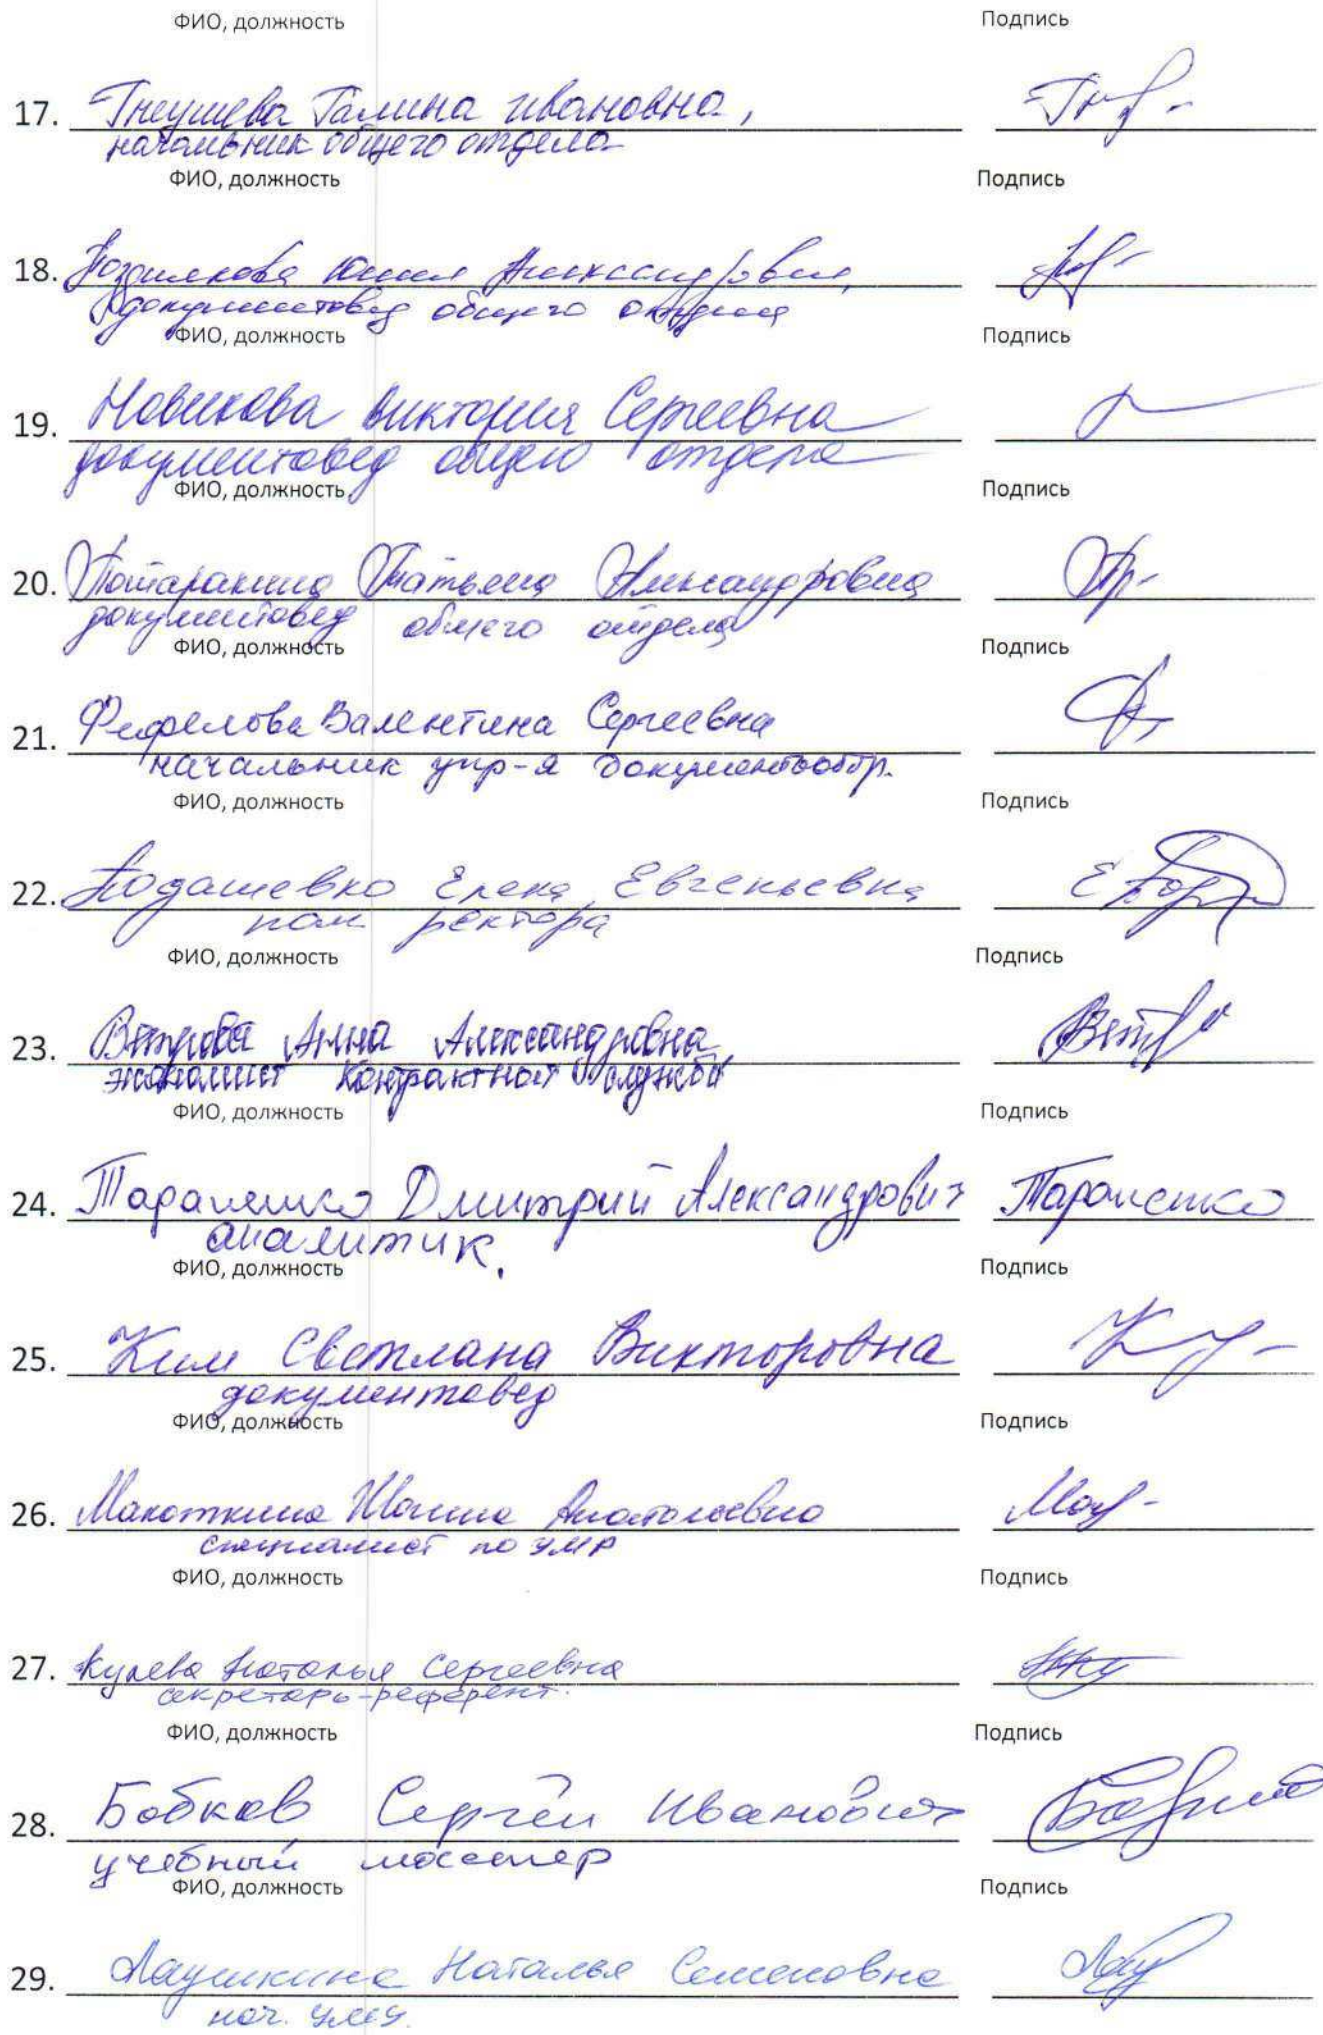 ФИО, должность Подпись
17. Гнеушева Галина Ивановна,
начальник общего отдела
ФИО, должность Подпись
18. Юлия Александровна,
документовед общего отдела
ФИО, должность Подпись
19. Новикова Виктория Сергеевна
документовед общего отдела
ФИО, должность Подпись
20. Потаракина Татьяна Александровна
документовед общего отдела
ФИО, должность Подпись
21. Фефелова Валентина Сергеевна
начальник упр-я документообор.
ФИО, должность Подпись
22. Подашевко Елена Евгеньевна
пом ректора
ФИО, должность Подпись
23. Ветрова Анна Александровна
экономист контрактной службы
ФИО, должность Подпись
24. Дмитрий Александрович
аналитик.
ФИО, должность Подпись
25. Ким Светлана Викторовна
документовед
ФИО, должность Подпись
26. Макоткина Жанна Анатольевна
специалист по УМР
ФИО, должность Подпись
27. Кулева Наталья Сергеевна
секретарь-референт.
ФИО, должность Подпись
28. Бобков Сергей Иванович
учебный мастер
ФИО, должность Подпись
29. Лаушкина Наталья Семеновна
нач. УМУ.